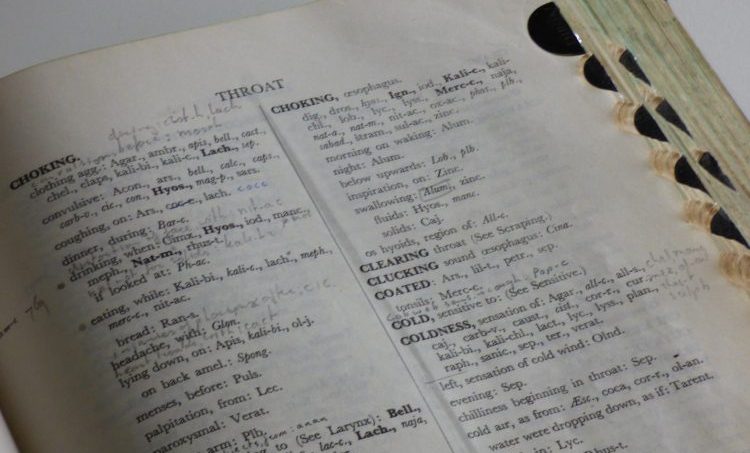 THROAT
CHOKING.
clothing agg.: Agar., ambr., apis, bell., cact.,
chel., elaps, kali-bi., kali-c., Lach., sep.
convulsive: Acon., ars., bell., calc., caps.,
carb-v., cic., con., Hyos., mag-p., sars.
coughing, on: Ars., coc-c., lach. cocc
dinner, during: Bar-c.
drinking, when: Cimx., Hyos., iod., manc.,
meph., Nat-m., rhus-t.
if looked at: Ph-ac.
eating, while: Kali-bi., kali-c., lach., meph.,
merc-c., nit-ac.
bread: Ran-s.
headache, with: Glon.
lying down, on: Apis, kali-bi., ol-j.
on back amel.: Spong.
menses, before: Puls.
palpitation, from: Lec.
paroxysmal: Verat.
arm: Plb.
to (See Larynx): Bell.,
lac-c., Lach., naja,
CHOKING, œsophagus.
dig., dros., hyos., Ign., iod., Kali-c., kali-
chl., lob., lyc., lyss., Merc-c., naja,
nat-a., nat-m., nit-ac., ox-ac., phor., plb.,
sabad., stram., sul-ac., zinc.
morning on waking: Alum.
night: Alum.
below upwards: Lob., plb.
inspiration, on: Zinc.
swallowing: Alum., zinc.
fluids: Hyos., manc.
solids: Caj.
os hyoids, region of: All-c.
CLEARING throat (See Scraping.)
CLUCKING sound œsophagus: Cina.
COATED: Ars., lil-t., petr., sep.
tonsils: Merc-c.
COLD, sensitive to: (See Sensitive.)
COLDNESS, sensation of: Agar., all-c., all-s.,
caj., carb-v., caust., cist., cor-r., cur.
kali-bi., kali-chl., lact., lyc., lyss., plan.,
raph., sanic., sep., ter., verat.
left, sensation of cold wind: Olnd.
evening: Sep.
chilliness beginning in throat: Sep.
cold air, as from: Æsc., coca, cor-r., ol-an.
water were dropping down, as if: Tarent.
in: Lyc.
Rhus-t.